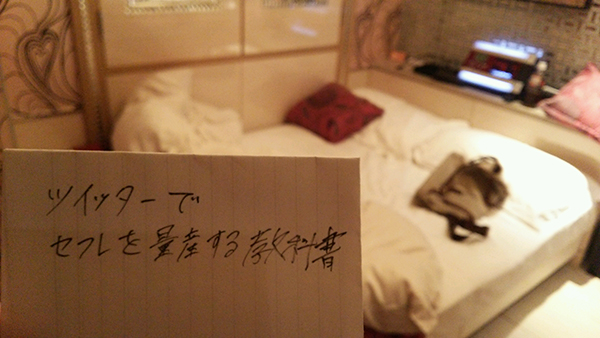 ツイッターで
セフレを量産する教科書